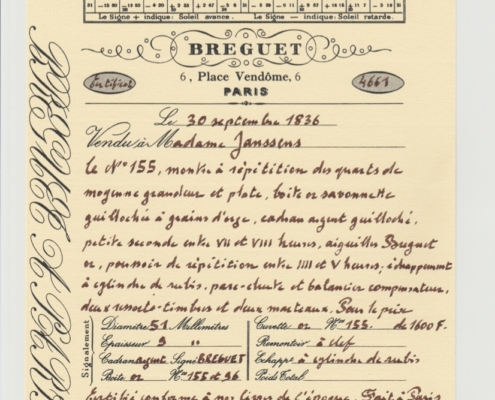 Le Signe + indique: Soleil avance. Le Signe — indique: Soleil retarde.
BREGUET
Certificat
6, Place Vendôme, 6
4663
PARIS
Le 30 septembre 1836
Vendu à Madame Janssens
le No 155, montre à répétition des quarts de
moyenne grandeur et plate, boîte or savonnette
guillochée à grains d'orge, cadran argent guilloché,
petite seconde entre VII et VIII heures, aiguilles Breguet
or, poussoir de répétition entre IIII et V heures, échappement
à cylindre de rubis, pare-chute et balancier compensateur,
deux ressorts-timbres et deux marteaux. Pour le prix
Signalement
Diamètre 51 Millimètres
Cuvette or No 155. de 1600 F.
Epaisseur 9 "
Remontoir à clef
Cadran argent Signé BREGUET
Echappt à cylindre de rubis
Boîte or No 155 et 96
Poids Total
Certifié conforme à nos livres de l'époque. Fait à Paris